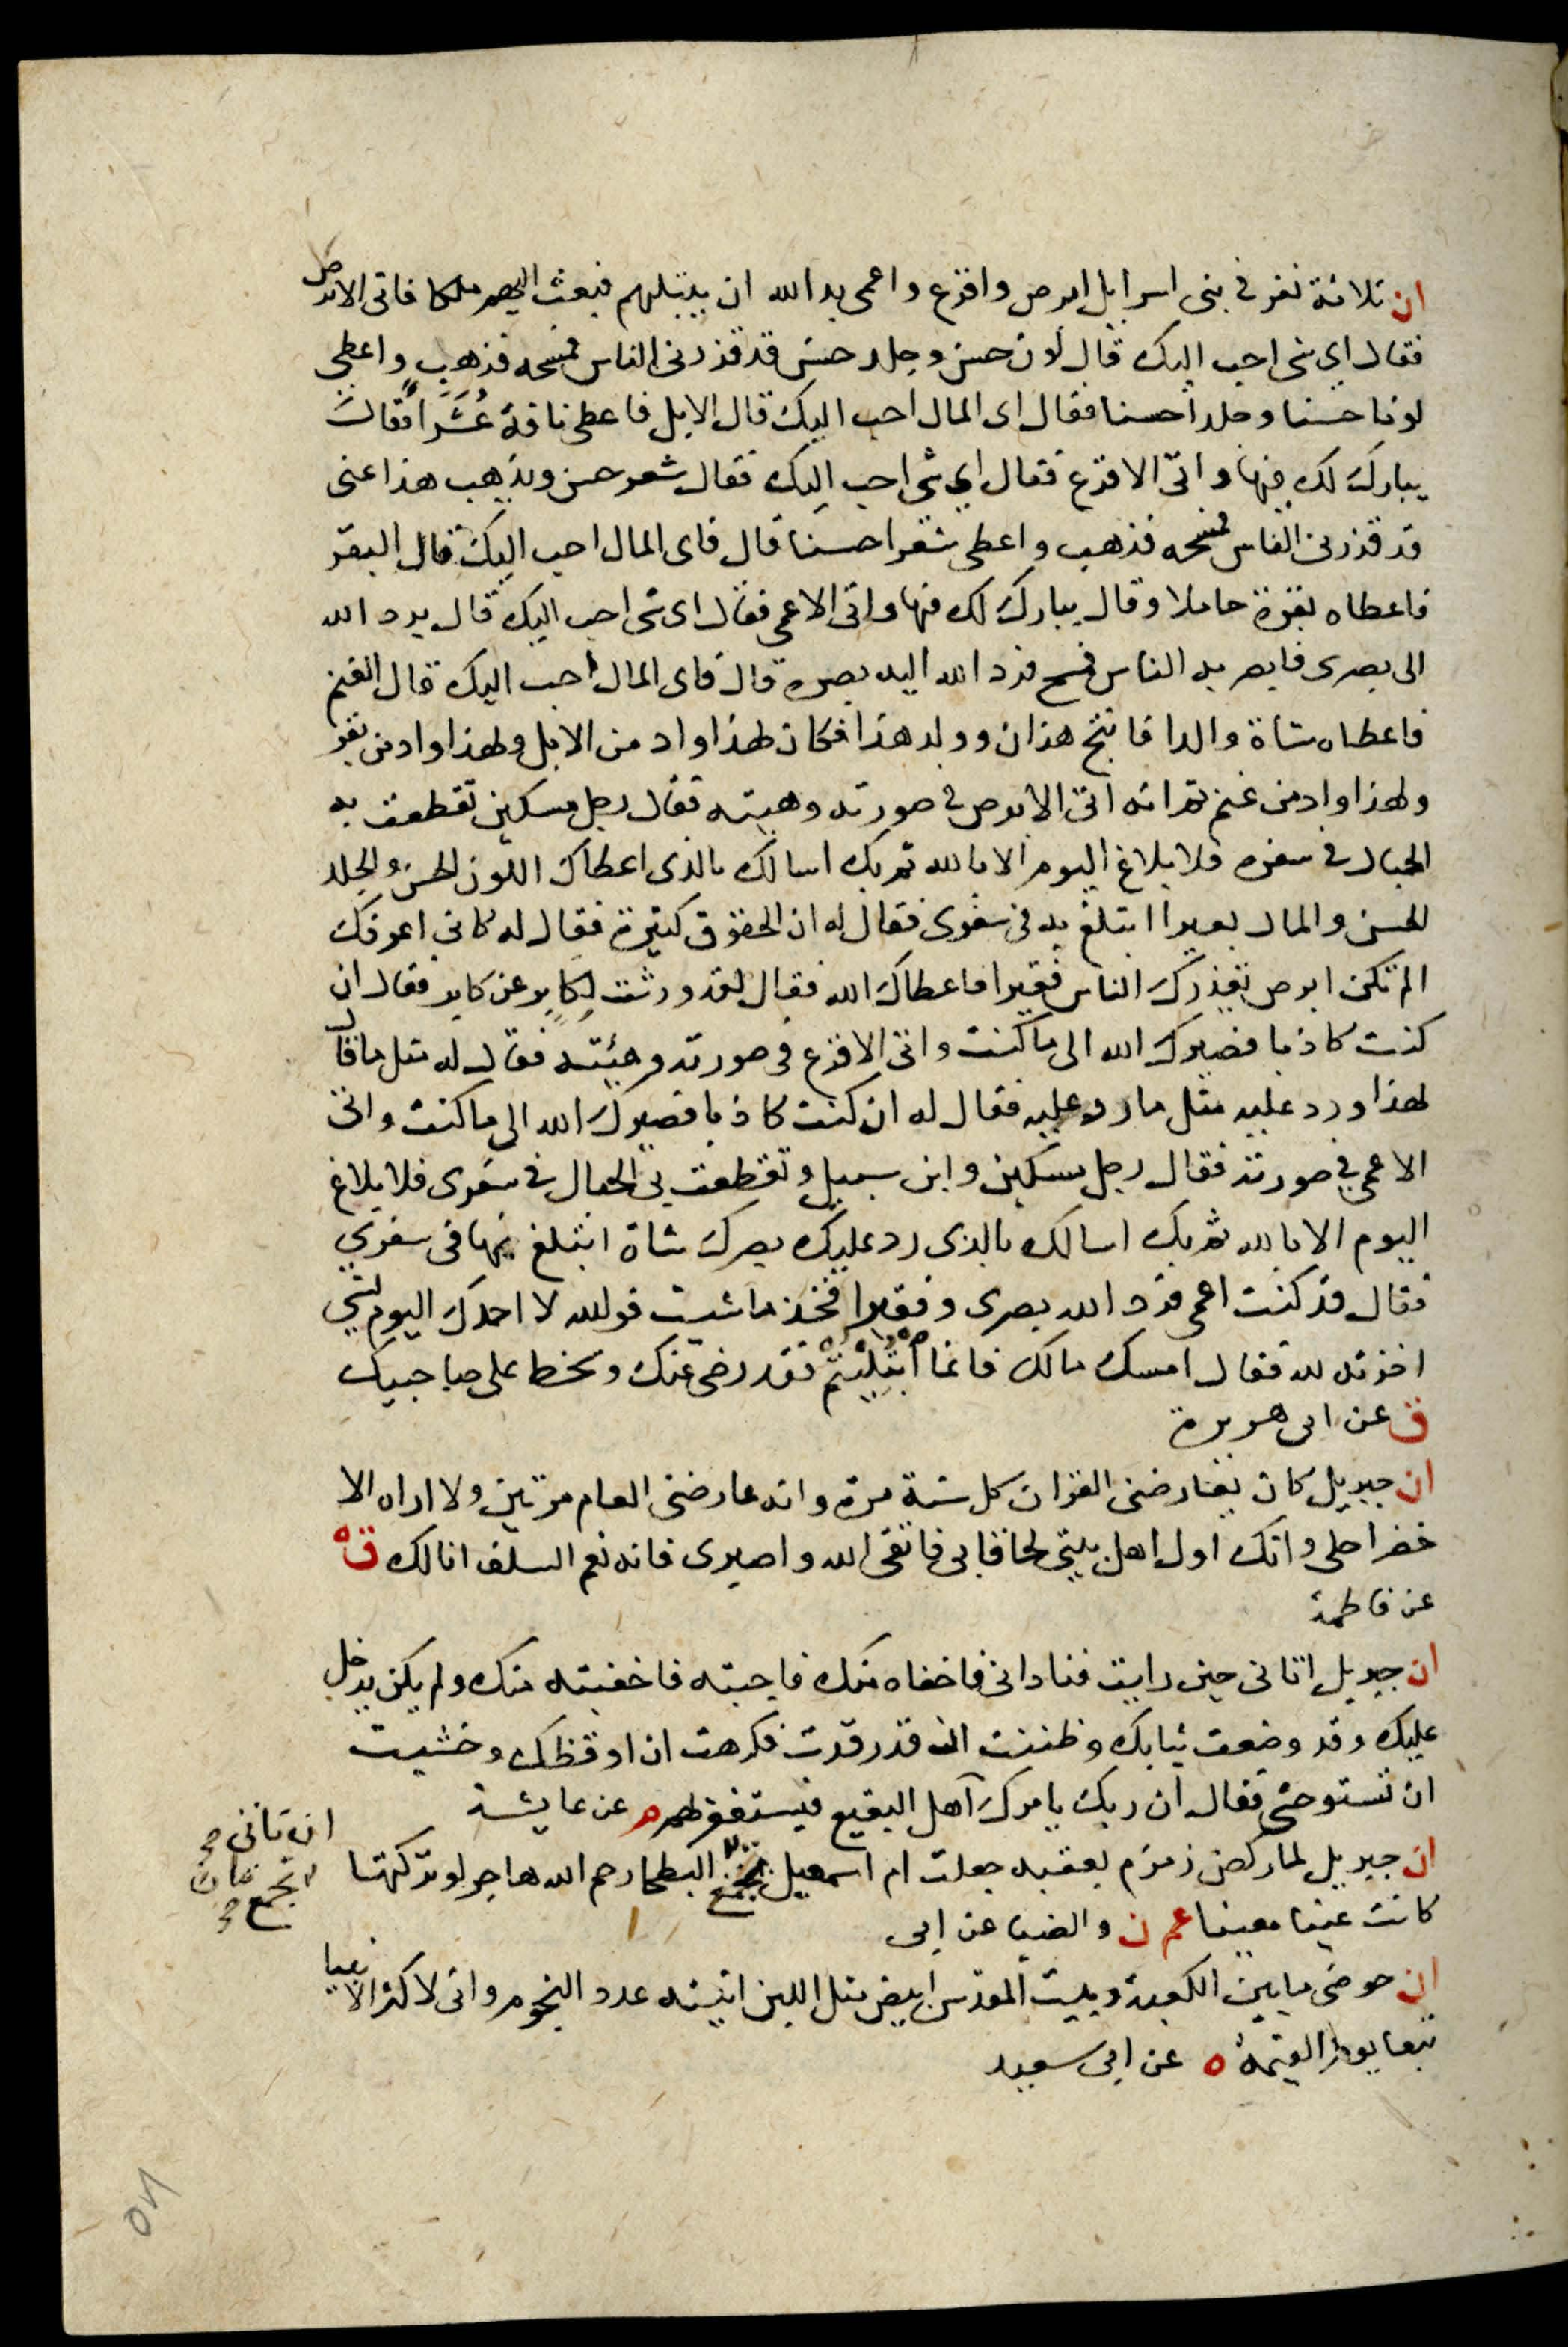 ان ثلاثة نفر في بنى اسرايل ابرص واقرع واعمى بد الله ان يبتليهم فبعث اليهم ملكا فاتى الابرص
فقال اي شى احب اليك قال لون حسن وجلد حسن قد قذرنى الناس فمسحه فذهب واعطى
لونا حسنا وجلدا حسنا فقال اى المال احب اليك قال الابل فاعطى ناقة عُشَرَاً فقال
يبارك لك فيها واتى الاقرع فقال اي شى احب اليك فقال شعر حسن ويذهب هذا عنى
قد قذرنى الناس فمسحه فذهب واعطى شعرا حسنا قال فاى المال احب اليك قال البقر
فاعطاه بقرة حاملا وقال يبارك لك فيها واتى الاعمى فقال اى شى احب اليك قال يرد الله
الى بصرى فابصر به الناس فمسح فرد الله اليه بصره قال فاى المال احب اليك قال الغنم
فاعطاه شاة والدا فانتج هذان وولد هذا فكان لهذا واد من الابل ولهذا واد من بقر
ولهذا واد من غنم ثم انه اتى الابرص في صورته وهيئته فقال رجل مسكين تقطعت به
الحبال في سفره فلا بلاغ اليوم الا بالله ثم بك اسالك بالذى اعطاك اللون الحسن والجلد
الحسن والمال بعيرا اتبلغ به في سفرى فقال له ان الحقوق كثيرة فقال له كانى اعرفك
الم تكن ابرص يقذرك الناس فقيرا فاعطاك الله فقال لقد ورثت لكابر عن كابر فقال ان
كنت كاذبا فصيرك الله الى ما كنت واتى الاقرع في صورته وهيئته فقال له مثل ما قال
لهذا ورد عليه مثل ما رد عليه فقال له ان كنت كاذبا فصيرك الله الى ما كنت واتى
الاعمى في صورته فقال رجل مسكين وابن سبيل وتقطعت بى الحبال في سفرى فلا بلاغ
اليوم الا بالله ثم بك اسالك بالذى رد عليك بصرك شاة اتبلغ بها فى سفري
فقال قد كنت اعمى فرد الله بصرى وفقيرا فخذ ما شيت فوالله لا احمدك اليوم لشي
اخذته لله فقال امسك مالك فانما ابْتُلِيْتُمْ فقد رضى عنك وسخط على صاحبيك
ق عن ابى هريرة
ان جبريل كان يعارضنى القران كل سنة مرة وانه عارضنى العام مرتين ولا اراه الا
حضر اجلى وانك اول اهل بيتى لحاقا بى فاتقى الله واصبرى فانه نعم السلف انا لك ق ه
عن فاطمة
ان جبريل اتانى حين رايت فنادانى فاخفاه منك فاجبته فاخفيته منك ولم يكن يدخل
عليك وقد وضعت ثيابك وظننت ان قد رقدت فكرهت ان اوقظك وخشيت
ان تستوحشى فقال ان ربك يامرك اهل البقيع فيستغفر لهم م عن عايشة
ان تاتى صح
ان جبريل لما ركض زمزم بعقبه جعلت ام اسمعيل البطحا رحم الله هاجر لو تركتها
تجمع صح
كانت عينا معينا عم ن والضيا عن ابى
ان حوضى ما بين الكعبة وبيت المقدس ابيض مثل اللبن انيته عدد النجوم وانى لاكثر الانبيا
تبعا يوم القيمة ه عن ابى سعيد